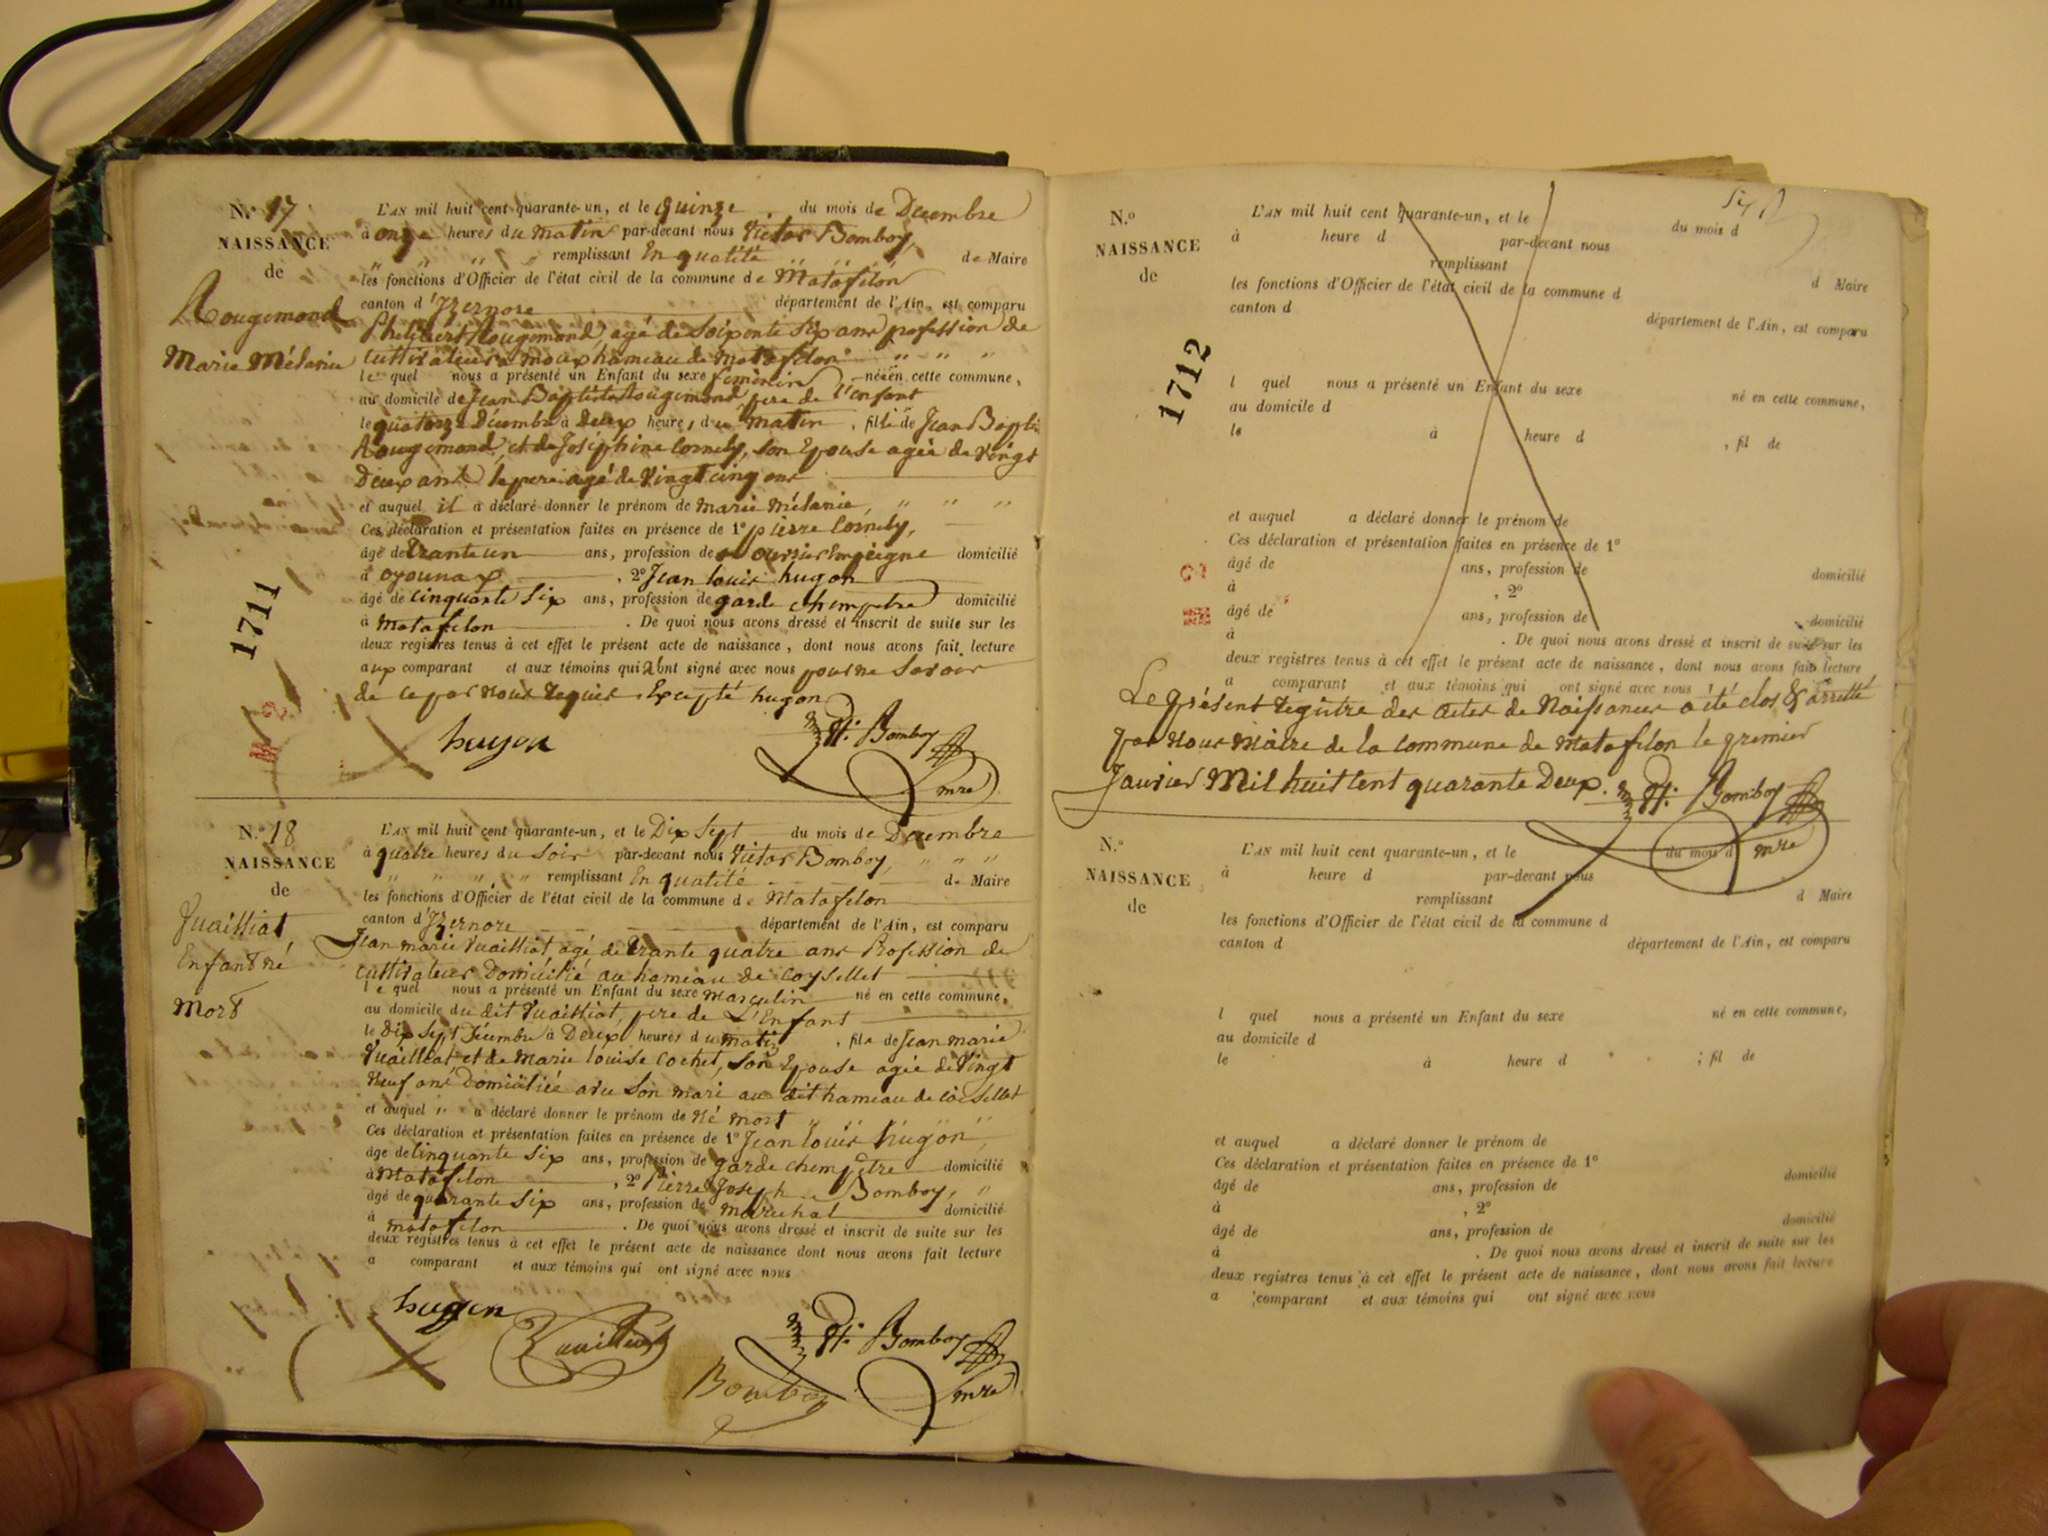 N.º 17
NAISSANCE
de
Rougemond
Marie Mélanie
L'AN mil huit cent quarante-un, et le quinze du mois de Décembre
à onze heures du matin par-devant nous Victor Bomboy,
remplissant En qualité de Maire
les fonctions d'Officier de l'état civil de la commune de Matafelon
canton d'Izernore département de l'Ain, est comparu
Philibert Rougemond, agé de soixante six ans profession de
cultivateur a moux hameau de matafelon
le quel nous a présenté un Enfant du sexe féminin né en cette commune,
au domicile de Jean Baptiste Rougemond, père de l'enfant
le quatorze Décembre à deux heures du matin, fille de Jean Baptiste
Rougemond, et de Joséphine Cornely, son Epouse agée de vingt
Deux ans le pere agé de vingt cinq ans
et auquel il a déclaré donner le prénom de marie mélanie,
Ces déclaration et présentation faites en présence de 1º pierre Cornely,
âgé de trante un ans, profession de ouvrier En peigne domicilié
à oyounax, 2º Jean louis hugon
âgé de cinquante six ans, profession de garde champetre domicilié
à matafelon. De quoi nous avons dressé et inscrit de suite sur les
deux registres tenus à cet effet le présent acte de naissance, dont nous avons fait lecture
aux comparant et aux témoins qui ont signé avec nous pour ne savoir
de ce par nous requis Excepté hugon
hugon
Bomboy
mre
1711
N.º 18
NAISSANCE
de
Vuailliat
Enfant né
Mort
L'AN mil huit cent quarante-un, et le Dix Sept du mois de Décembre
à quatre heures du soir par-devant nous Victor Bomboy,
remplissant En qualité de Maire
les fonctions d'Officier de l'état civil de la commune de Matafelon
canton d'Izernore département de l'Ain, est comparu
Jean marie Vuailliat agé de trante quatre ans Profession de
cultivateur Domicilié au hameau de Coysellet
le quel nous a présenté un Enfant du sexe masculin né en cette commune,
au domicile du dit Vuailliat, pere de L'Enfant
le dix sept Décembre à Deux heures du matin, fils de Jean marie
Vuailliat et de Marie louise Cochet, son Epouse agée de vingt
Neuf ans Domiciliée avec son mari au dit hameau de Coisellet
et auquel a déclaré donner le prénom de Né mort
Ces déclaration et présentation faites en présence de 1º Jean louis hugon,
âgé de cinquante six ans, profession de garde champêtre domicilié
à Matafelon, 2º Pierre Joseph Bomboy,
âgé de quarante six ans, profession de marechal domicilié
à matafelon. De quoi nous avons dressé et inscrit de suite sur les
deux registres tenus à cet effet le présent acte de naissance dont nous avons fait lecture
a comparant et aux témoins qui ont signé avec nous
hugon
Vuailliat
Bomboy
Bomboy
mre
N.º
NAISSANCE
de
1712
L'AN mil huit cent quarante-un, et le du mois d
à heure d par-devant nous
remplissant d Maire
les fonctions d'Officier de l'état civil de la commune d
canton d département de l'Ain, est comparu
l quel nous a présenté un Enfant du sexe né en cette commune,
au domicile d
le à heure d , fil de
et auquel a déclaré donner le prénom de
Ces déclaration et présentation faites en présence de 1º
âgé de ans, profession de domicilié
à , 2º
âgé de ans, profession de domicilié
à . De quoi nous avons dressé et inscrit de suite sur les
deux registres tenus à cet effet le présent acte de naissance, dont nous avons fait lecture
a comparant et aux témoins qui ont signé avec nous
Le présent registre des actes de Naissances a été clos & arretté
par Nous Maire de la commune de Matafelon le premier
Janvier Mil huit Cent quarante Deux.
Bomboy
mre
N.º
NAISSANCE
de
L'AN mil huit cent quarante-un, et le du mois d
à heure d par-devant nous
remplissant d Maire
les fonctions d'Officier de l'état civil de la commune d
canton d département de l'Ain, est comparu
l quel nous a présenté un Enfant du sexe né en cette commune,
au domicile d
le à heure d ; fil de
et auquel a déclaré donner le prénom de
Ces déclaration et présentation faites en présence de 1º
âgé de ans, profession de domicilié
à , 2º
âgé de ans, profession de domicilié
à . De quoi nous avons dressé et inscrit de suite sur les
deux registres tenus à cet effet le présent acte de naissance, dont nous avons fait lecture
a comparant et aux témoins qui ont signé avec nous